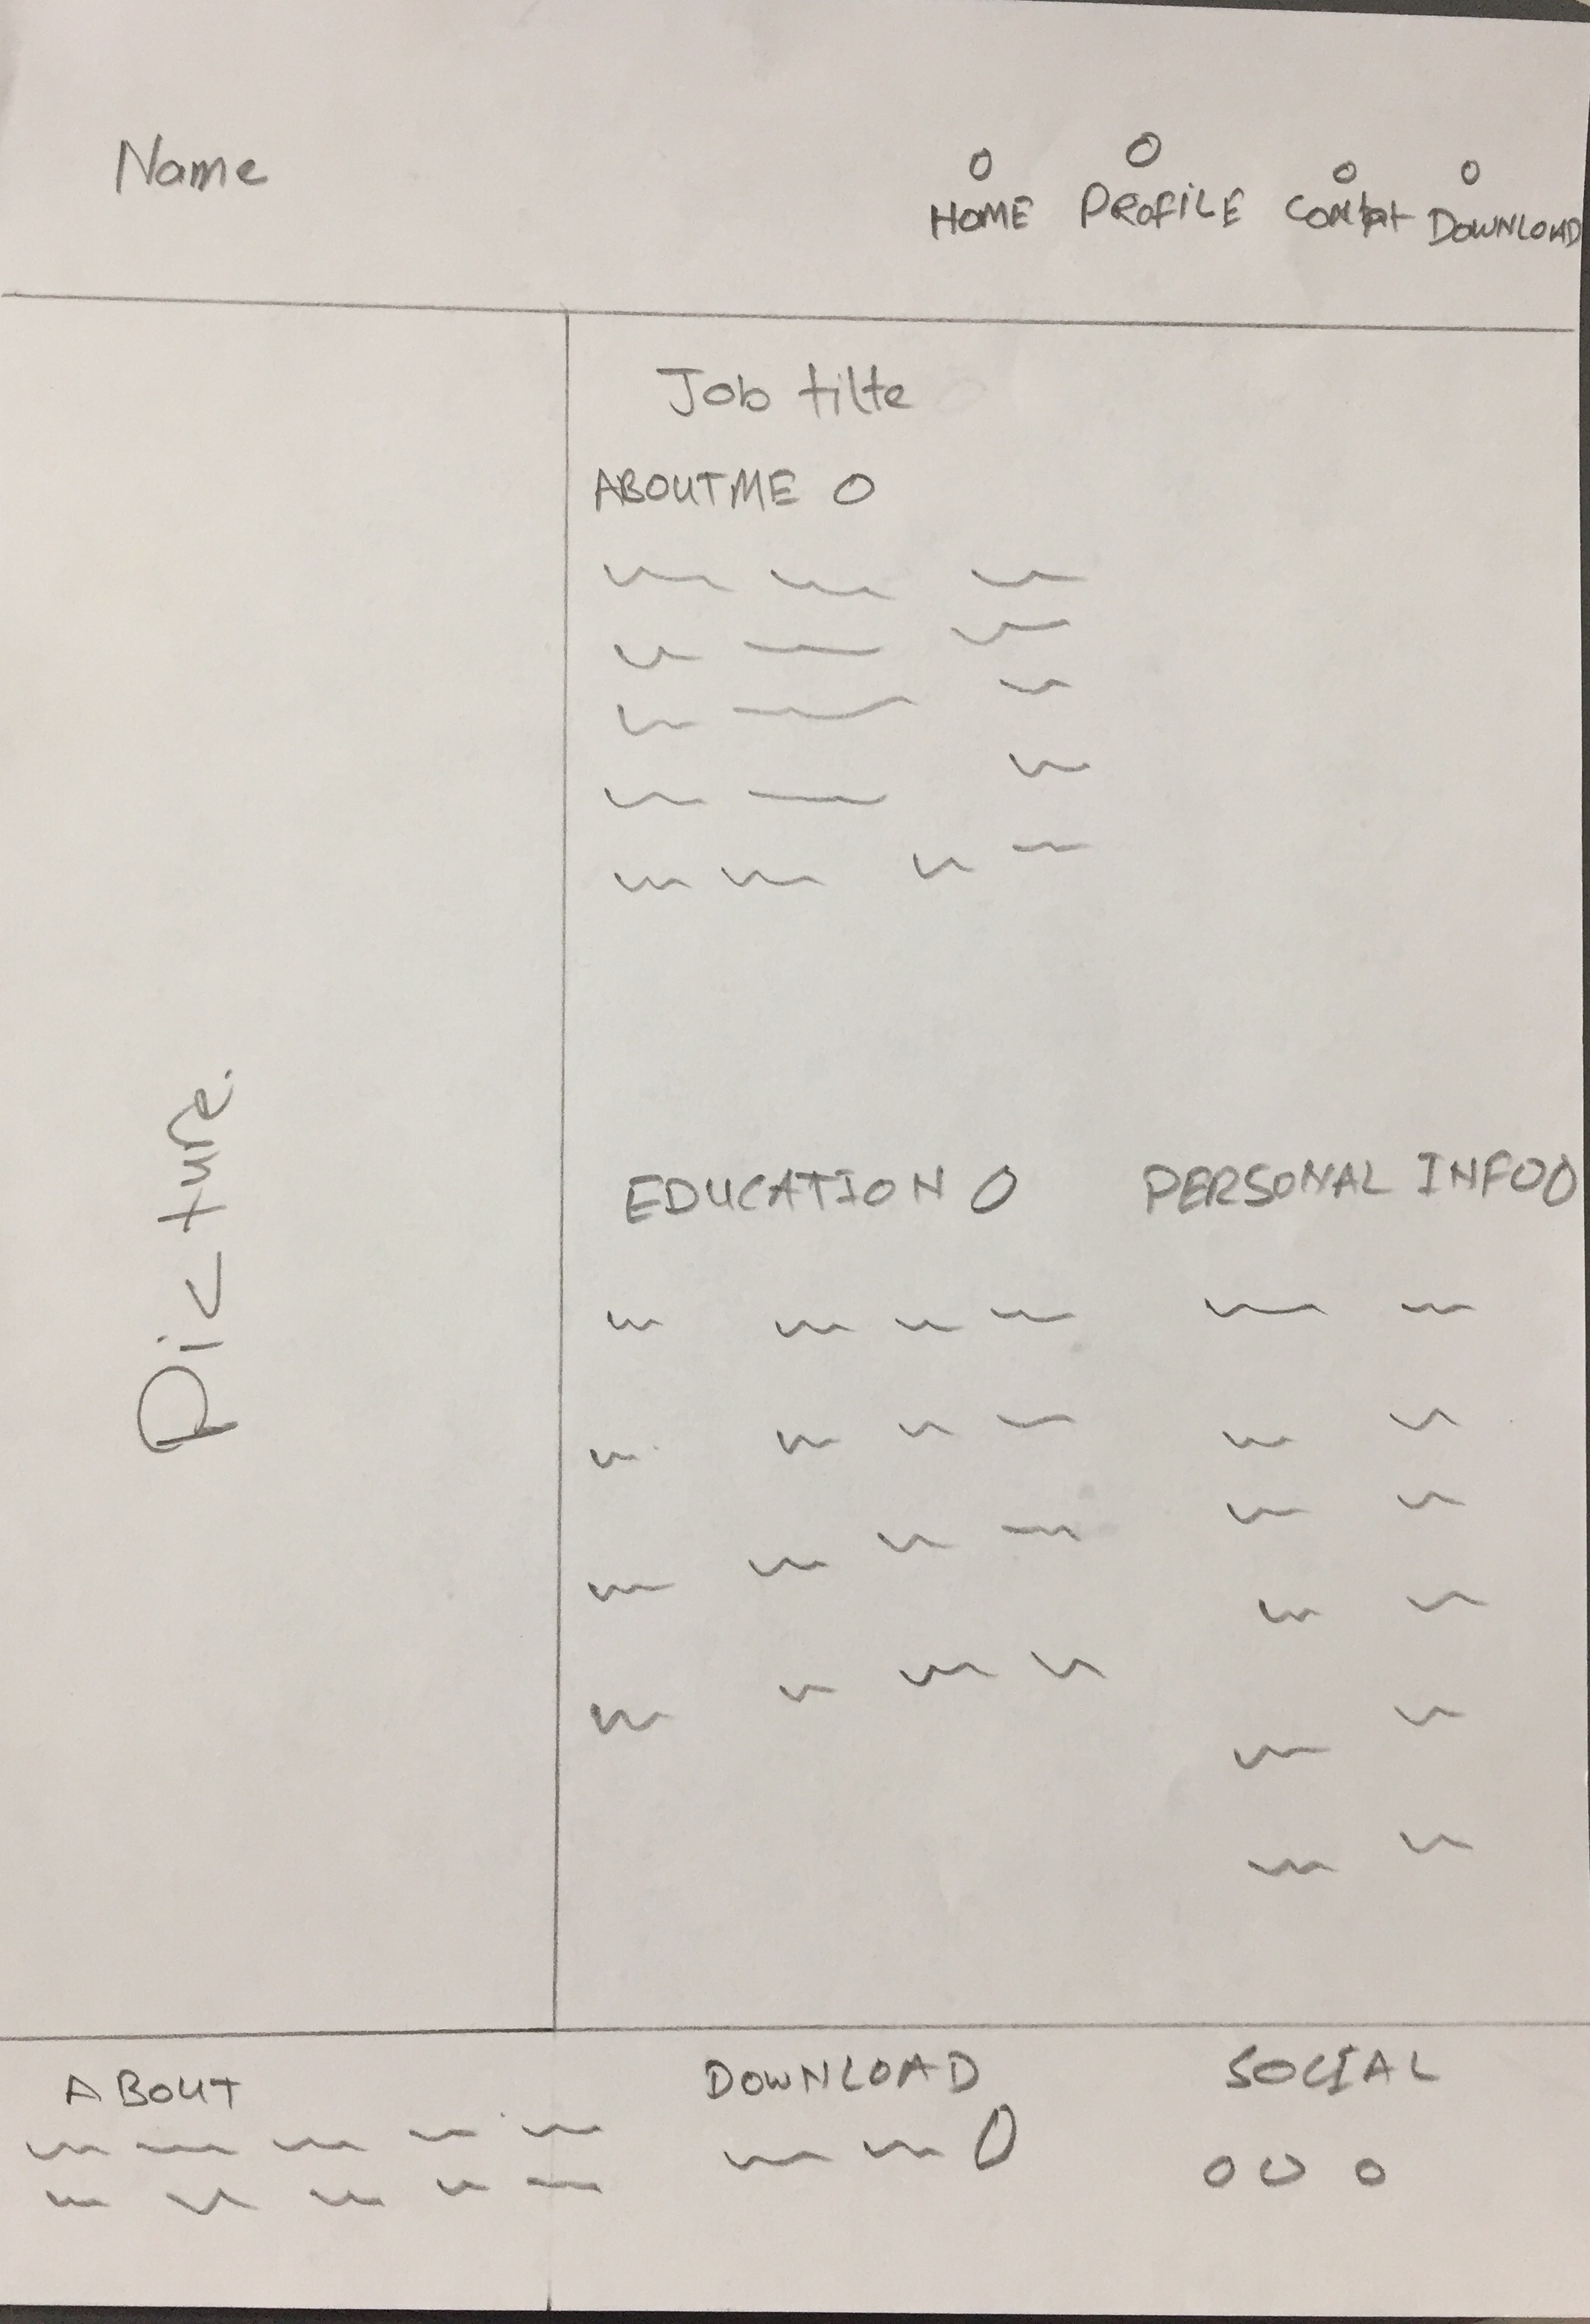 Name
HOME PROFILE Contat DOWNLOAD
Job tilte
ABOUT ME
Picture.
EDUCATION PERSONAL INFO
ABOUT DOWNLOAD SOCIAL